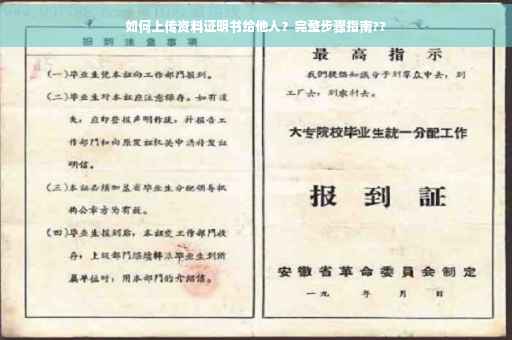 如何上传资料证明书给他人？完整步骤指南??
报到注意事项
(一)毕业生凭本证向工作部门报到。
(二)毕业生对本证应注意保存。如有遗
失，应即登报声明作废，并报告工
作部门和向原发证机关申请补发证
明信。
(三)本证必须加盖省毕业生分配领导机
构公章方为有效。
(四)毕业生报到后，本证交工作部门收
存；上级部门继续转派毕业生到所
属单位时，用本部门的介绍信。
最高指示
我们提倡知识分子到群众中去，到
工厂去，到农村去。
大专院校毕业生統一分配工作
报到証
安徽省革命委員会制定
一九 年 月 日